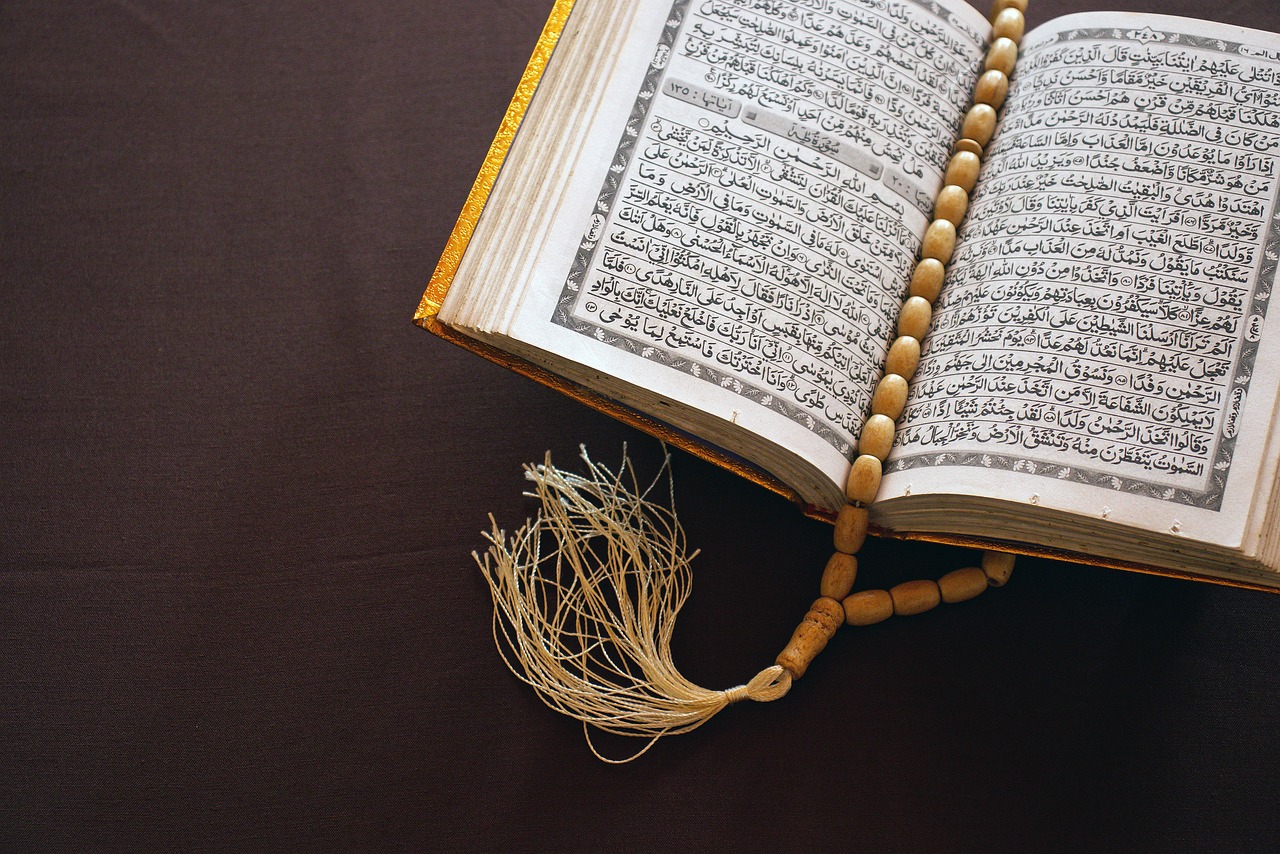 ٢٤٨
ذَا تُتْلٰى عَلَيْهِمْ اٰيٰتُنَا بَيِّنٰتٍ قَالَ الَّذِيْنَ كَفَرُوْا
اَيُّ الْفَرِيْقَيْنِ خَيْرٌ مَّقَامًا وَّاَحْسَنُ نَدِيًّا
هْلَكْنَا قَبْلَهُمْ مِّنْ قَرْنٍ هُمْ اَحْسَنُ اَثَاثًا
مَنْ كَانَ فِي الضَّلٰلَةِ فَلْيَمْدُدْ لَهُ الرَّحْمٰنُ مَدًّا
اِذَا رَاَوْا مَا يُوْعَدُوْنَ اِمَّا الْعَذَابَ وَاِمَّا السَّاعَةَ
مَنْ هُوَ شَرٌّ مَّكَانًا وَّاَضْعَفُ جُنْدًا ۝ وَيَزِيْدُ اللّٰهُ
اهْتَدَوْا هُدًى ؕ وَالْبٰقِيٰتُ الصّٰلِحٰتُ خَيْرٌ عِنْدَ رَبِّكَ
وَّخَيْرٌ مَّرَدًّا ۝ اَفَرَءَيْتَ الَّذِيْ كَفَرَ بِاٰيٰتِنَا وَقَالَ لَاُوْتَيَنَّ
وَّوَلَدًا ۝ اَطَّلَعَ الْغَيْبَ اَمِ اتَّخَذَ عِنْدَ الرَّحْمٰنِ عَهْدًا
سَنَكْتُبُ مَا يَقُوْلُ وَنَمُدُّ لَهٗ مِنَ الْعَذَابِ مَدًّا ۝ وَّنَرِثُهٗ
يَقُوْلُ وَيَاْتِيْنَا فَرْدًا ۝ وَاتَّخَذُوْا مِنْ دُوْنِ اللّٰهِ اٰلِهَةً
لَهُمْ عِزًّا ۝ كَلَّا ؕ سَيَكْفُرُوْنَ بِعِبَادَتِهِمْ وَيَكُوْنُوْنَ عَلَيْهِمْ ضِدًّا
اَلَمْ تَرَ اَنَّا اَرْسَلْنَا الشَّيٰطِيْنَ عَلَى الْكٰفِرِيْنَ تَؤُزُّهُمْ اَزًّا
تَعْجَلْ عَلَيْهِمْ ؕ اِنَّمَا نَعُدُّ لَهُمْ عَدًّا ۝ يَوْمَ نَحْشُرُ الْمُتَّقِيْنَ
الرَّحْمٰنِ وَفْدًا ۝ وَّنَسُوْقُ الْمُجْرِمِيْنَ اِلٰى جَهَنَّمَ وِرْدًا
لَا يَمْلِكُوْنَ الشَّفَاعَةَ اِلَّا مَنِ اتَّخَذَ عِنْدَ الرَّحْمٰنِ عَهْدًا
وَقَالُوا اتَّخَذَ الرَّحْمٰنُ وَلَدًا ۝ لَقَدْ جِئْتُمْ شَيْئًا اِدًّا ۝ تَكَادُ
السَّمٰوٰتُ يَتَفَطَّرْنَ مِنْهُ وَتَنْشَقُّ الْاَرْضُ وَتَخِرُّ الْجِبَالُ هَدًّا
لِلرَّحْمٰنِ وَلَدًا
كُلُّ مَنْ فِي السَّمٰوٰتِ وَالْاَرْضِ
لَقَدْ اَحْصٰهُمْ وَعَدَّهُمْ عَدًّا ۝ وَكُلُّهُمْ
اِنَّ الَّذِيْنَ اٰمَنُوْا وَعَمِلُوا الصّٰلِحٰتِ سَيَجْعَلُ
الرَّحْمٰنُ وُدًّا ۝ فَاِنَّمَا يَسَّرْنٰهُ بِلِسَانِكَ لِتُبَشِّرَ بِهِ
وَتُنْذِرَ بِهٖ قَوْمًا لُّدًّا ۝ وَكَمْ اَهْلَكْنَا قَبْلَهُمْ مِّنْ قَرْنٍ
هَلْ تُحِسُّ مِنْهُمْ مِّنْ اَحَدٍ اَوْ تَسْمَعُ لَهُمْ رِكْزًا
سُوْرَةُ طٰهٰ اٰيَاتُهَا : ١٣٥
بِسْمِ اللّٰهِ الرَّحْمٰنِ الرَّحِيْمِ
مَا اَنْزَلْنَا عَلَيْكَ الْقُرْاٰنَ لِتَشْقٰى ۝ اِلَّا تَذْكِرَةً لِّمَنْ يَّخْشٰى
مِّمَّنْ خَلَقَ الْاَرْضَ وَالسَّمٰوٰتِ الْعُلٰى ۝ اَلرَّحْمٰنُ عَلَى
اسْتَوٰى ۝ لَهٗ مَا فِي السَّمٰوٰتِ وَمَا فِي الْاَرْضِ وَمَا
وَمَا تَحْتَ الثَّرٰى ۝ وَاِنْ تَجْهَرْ بِالْقَوْلِ فَاِنَّهٗ يَعْلَمُ السِّرَّ
اَللّٰهُ لَا اِلٰهَ اِلَّا هُوَ ؕ لَهُ الْاَسْمَآءُ الْحُسْنٰى ۝ وَهَلْ اَتٰىكَ
مُوْسٰى ۝ اِذْ رَاٰ نَارًا فَقَالَ لِاَهْلِهِ امْكُثُوْا اِنِّيْ اٰنَسْتُ
اٰتِيْكُمْ مِّنْهَا بِقَبَسٍ اَوْ اَجِدُ عَلَى النَّارِ هُدًى ۝ فَلَمَّا
نُوْدِيَ يٰمُوْسٰى ۝ اِنِّيْ اَنَا رَبُّكَ فَاخْلَعْ نَعْلَيْكَ ۚ اِنَّكَ بِالْوَادِ
الْمُقَدَّسِ طُوًى ۝ وَاَنَا اخْتَرْتُكَ فَاسْتَمِعْ لِمَا يُوْحٰى